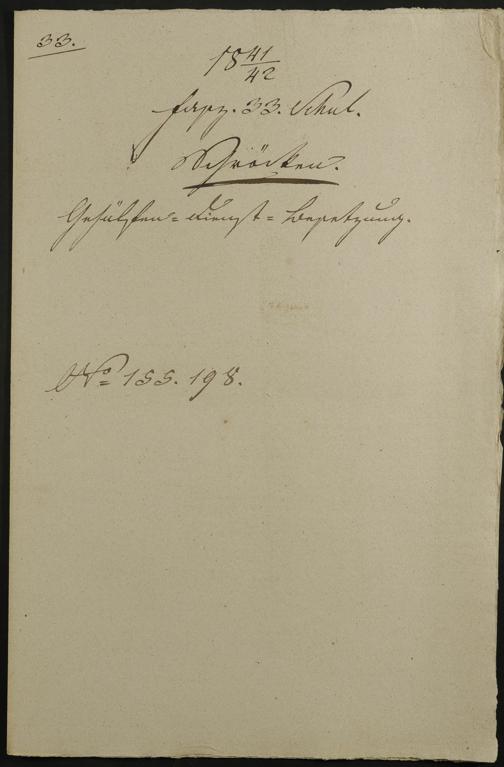 33.
18 41/42
Fasz. 33. Schul.
Schröcken.
Gehülfen=Dienst=Besetzung.
No 155. 198.